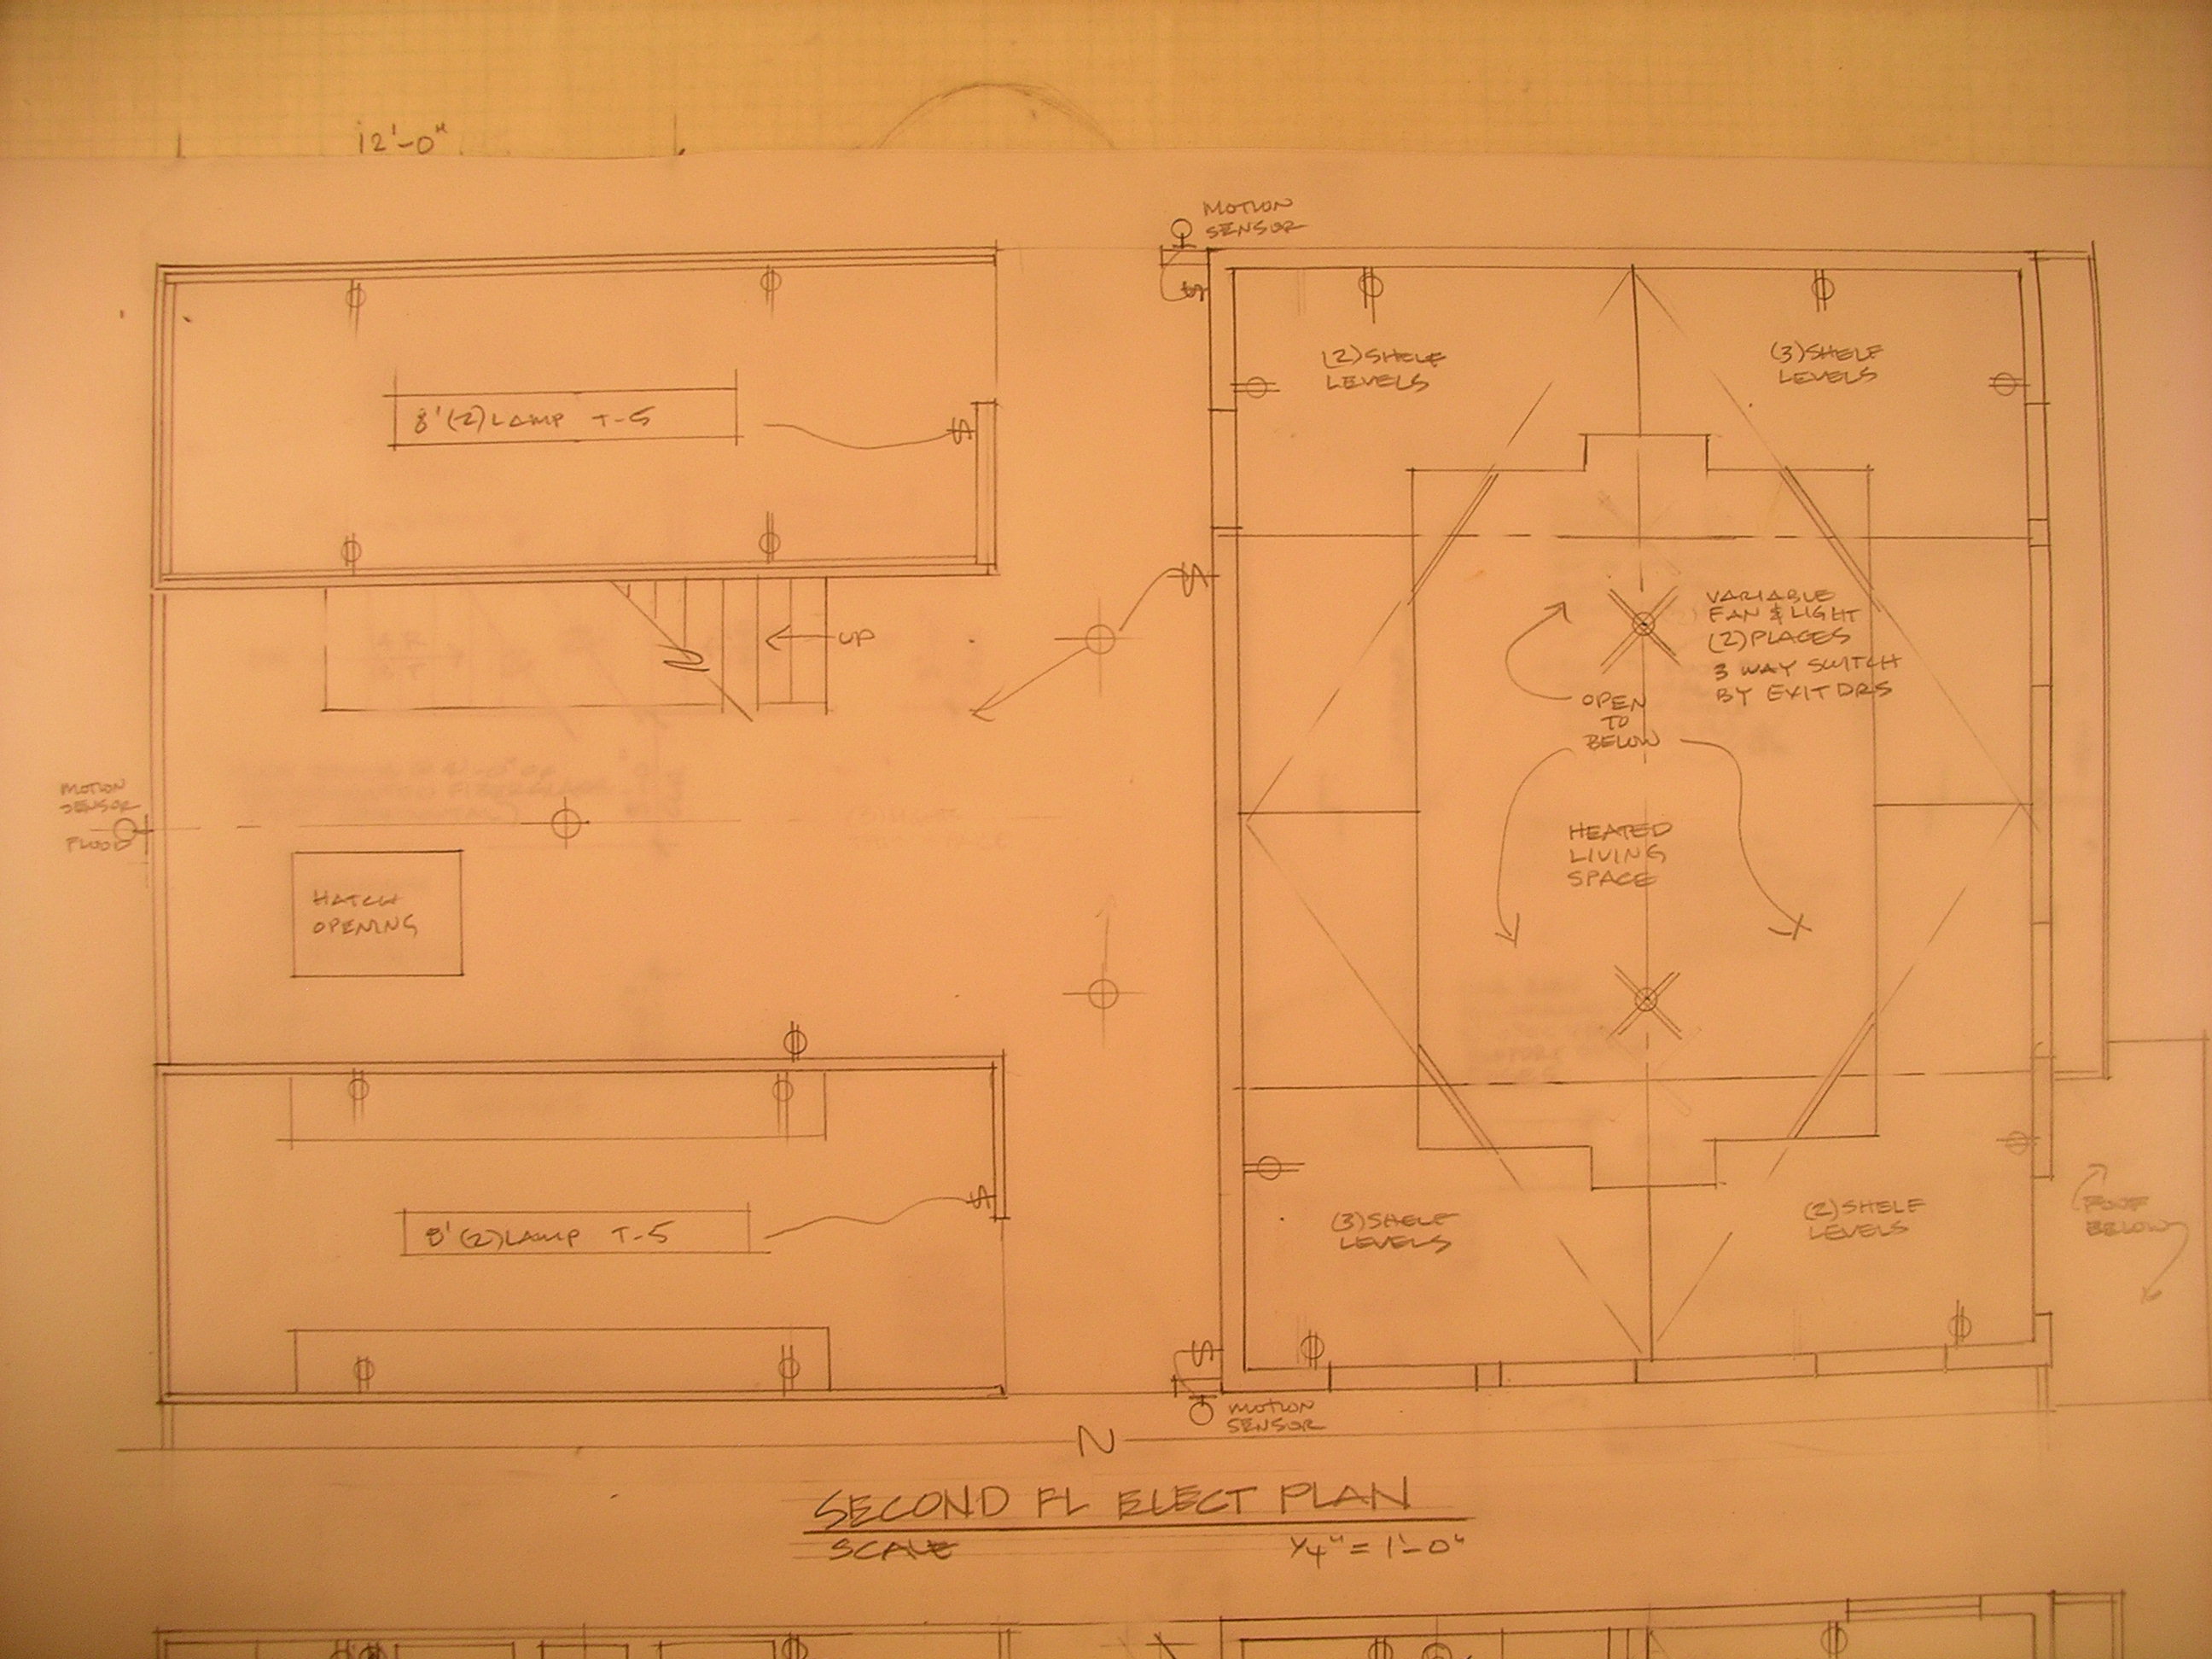 12'-0"
MOTION
SENSOR
(2) SHELF
LEVELS
(3) SHELF
LEVELS
8' (2) LAMP T-5
UP
VARIABLE
FAN & LIGHT
(2) PLACES
3 WAY SWITCH
BY EXIT DRS
OPEN
TO
BELOW
MOTION
SENSOR
FLOOD
HEATED
LIVING
SPACE
HATCH
OPENING
8' (2) LAMP T-5
(3) SHELF
LEVELS
(2) SHELF
LEVELS
ROOF
BELOW
MOTION
SENSOR
SECOND FL ELECT PLAN
SCALE 1/4" = 1'-0"